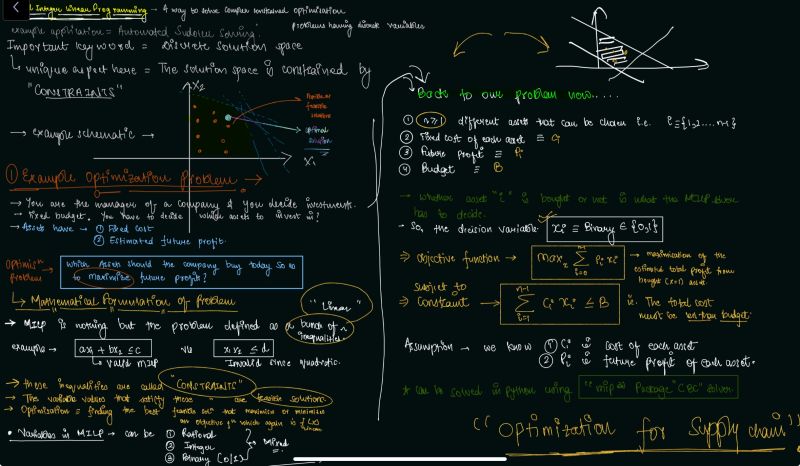 Integer Linear Programming → A way to solve complex constrained optimisation
problems having discrete variables
example application = Automated Sudoku Solving.
Important keyword = Discrete solution space
↳ unique aspect here = The solution space is constrained by
"CONSTRAINTS"
→ example schematic →
x2
feasible
solution
optimal
solution
x1
① Example Optimization Problem →
→ You are the manager of a company & you decide investments.
→ fixed budget. You have to decide which assets to invest in?
→ Assets have → ① Fixed cost
② Estimated future profit.
Optimisn problem →
which Assets should the company buy today so as
to maximize future profits?
↳ Mathematical Formulation of Problem
"Linear"
→ MILP is nothing but the problem defined as a bunch of
inequalities
example → ax1 + bx2 ≤ c vs x1 x2 ≤ d
↳ Valid MILP Invalid since quadratic.
→ these inequalities are called "CONSTRAINTS"
→ The variable values that satisfy these " are feasible solutions
→ Optimisation = finding the best feasible soln that maximise or minimizes
an objective fn which again is linear
• Variables in MILP → can be ① Rational
② Integer
③ Binary (0/1)
Mixed
Back to our problem now.....
① n≥1 different assets that can be chosen i.e. i={1,2....n-1}
② Fixed cost of each asset ≡ Ci
③ Future Profit ≡ Pi
④ Budget ≡ B
→ whether asset "i" is bought or not is what the MILP solver
has to decide.
- So, the decision variable xi ≡ Binary ∈ {0,1}
⇒ objective function → max x Σ Pi xi n-1 i=0 → maximisation of the
estimated total profit from
bought (x=1) asset.
subject to
⇒ Constraint ⇒ n-1 Σ i=1 Ci xi ≤ B i.e. The total cost
must be less than budget.
Assumption → we know ① Ci is cost of each asset
② Pi is future profit of each asset.
* can be solved in python using "mip" Package "CBC" solver
"Optimization for Supply chain"